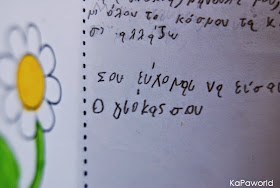 μι όλου το κόσμου τα κ
σ' αλλάζω
Σου εύχομαι να είσαι
Ο γιόκας σου
KaPaworld